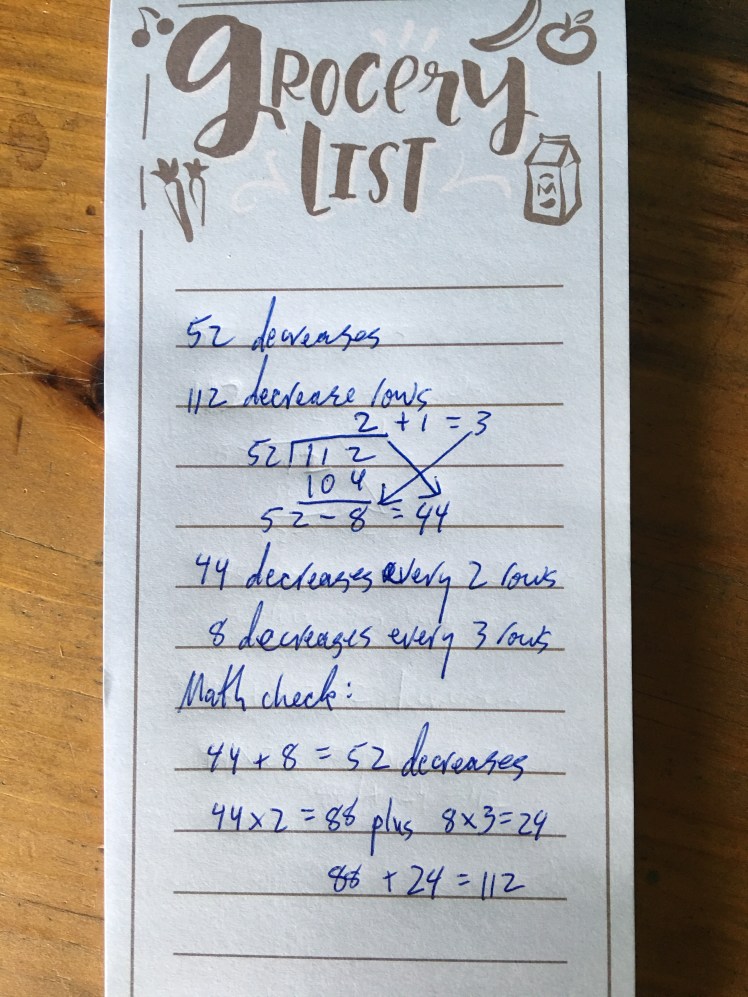 GROCERY
LIST
M
52 decreases
112 decrease rows
2 + 1 = 3
52 112
104
52 - 8 = 44
44 decreases every 2 rows
8 decreases every 3 rows
Math check:
44 + 8 = 52 decreases
44 x 2 = 88 plus 8 x 3 = 24
88 + 24 = 112